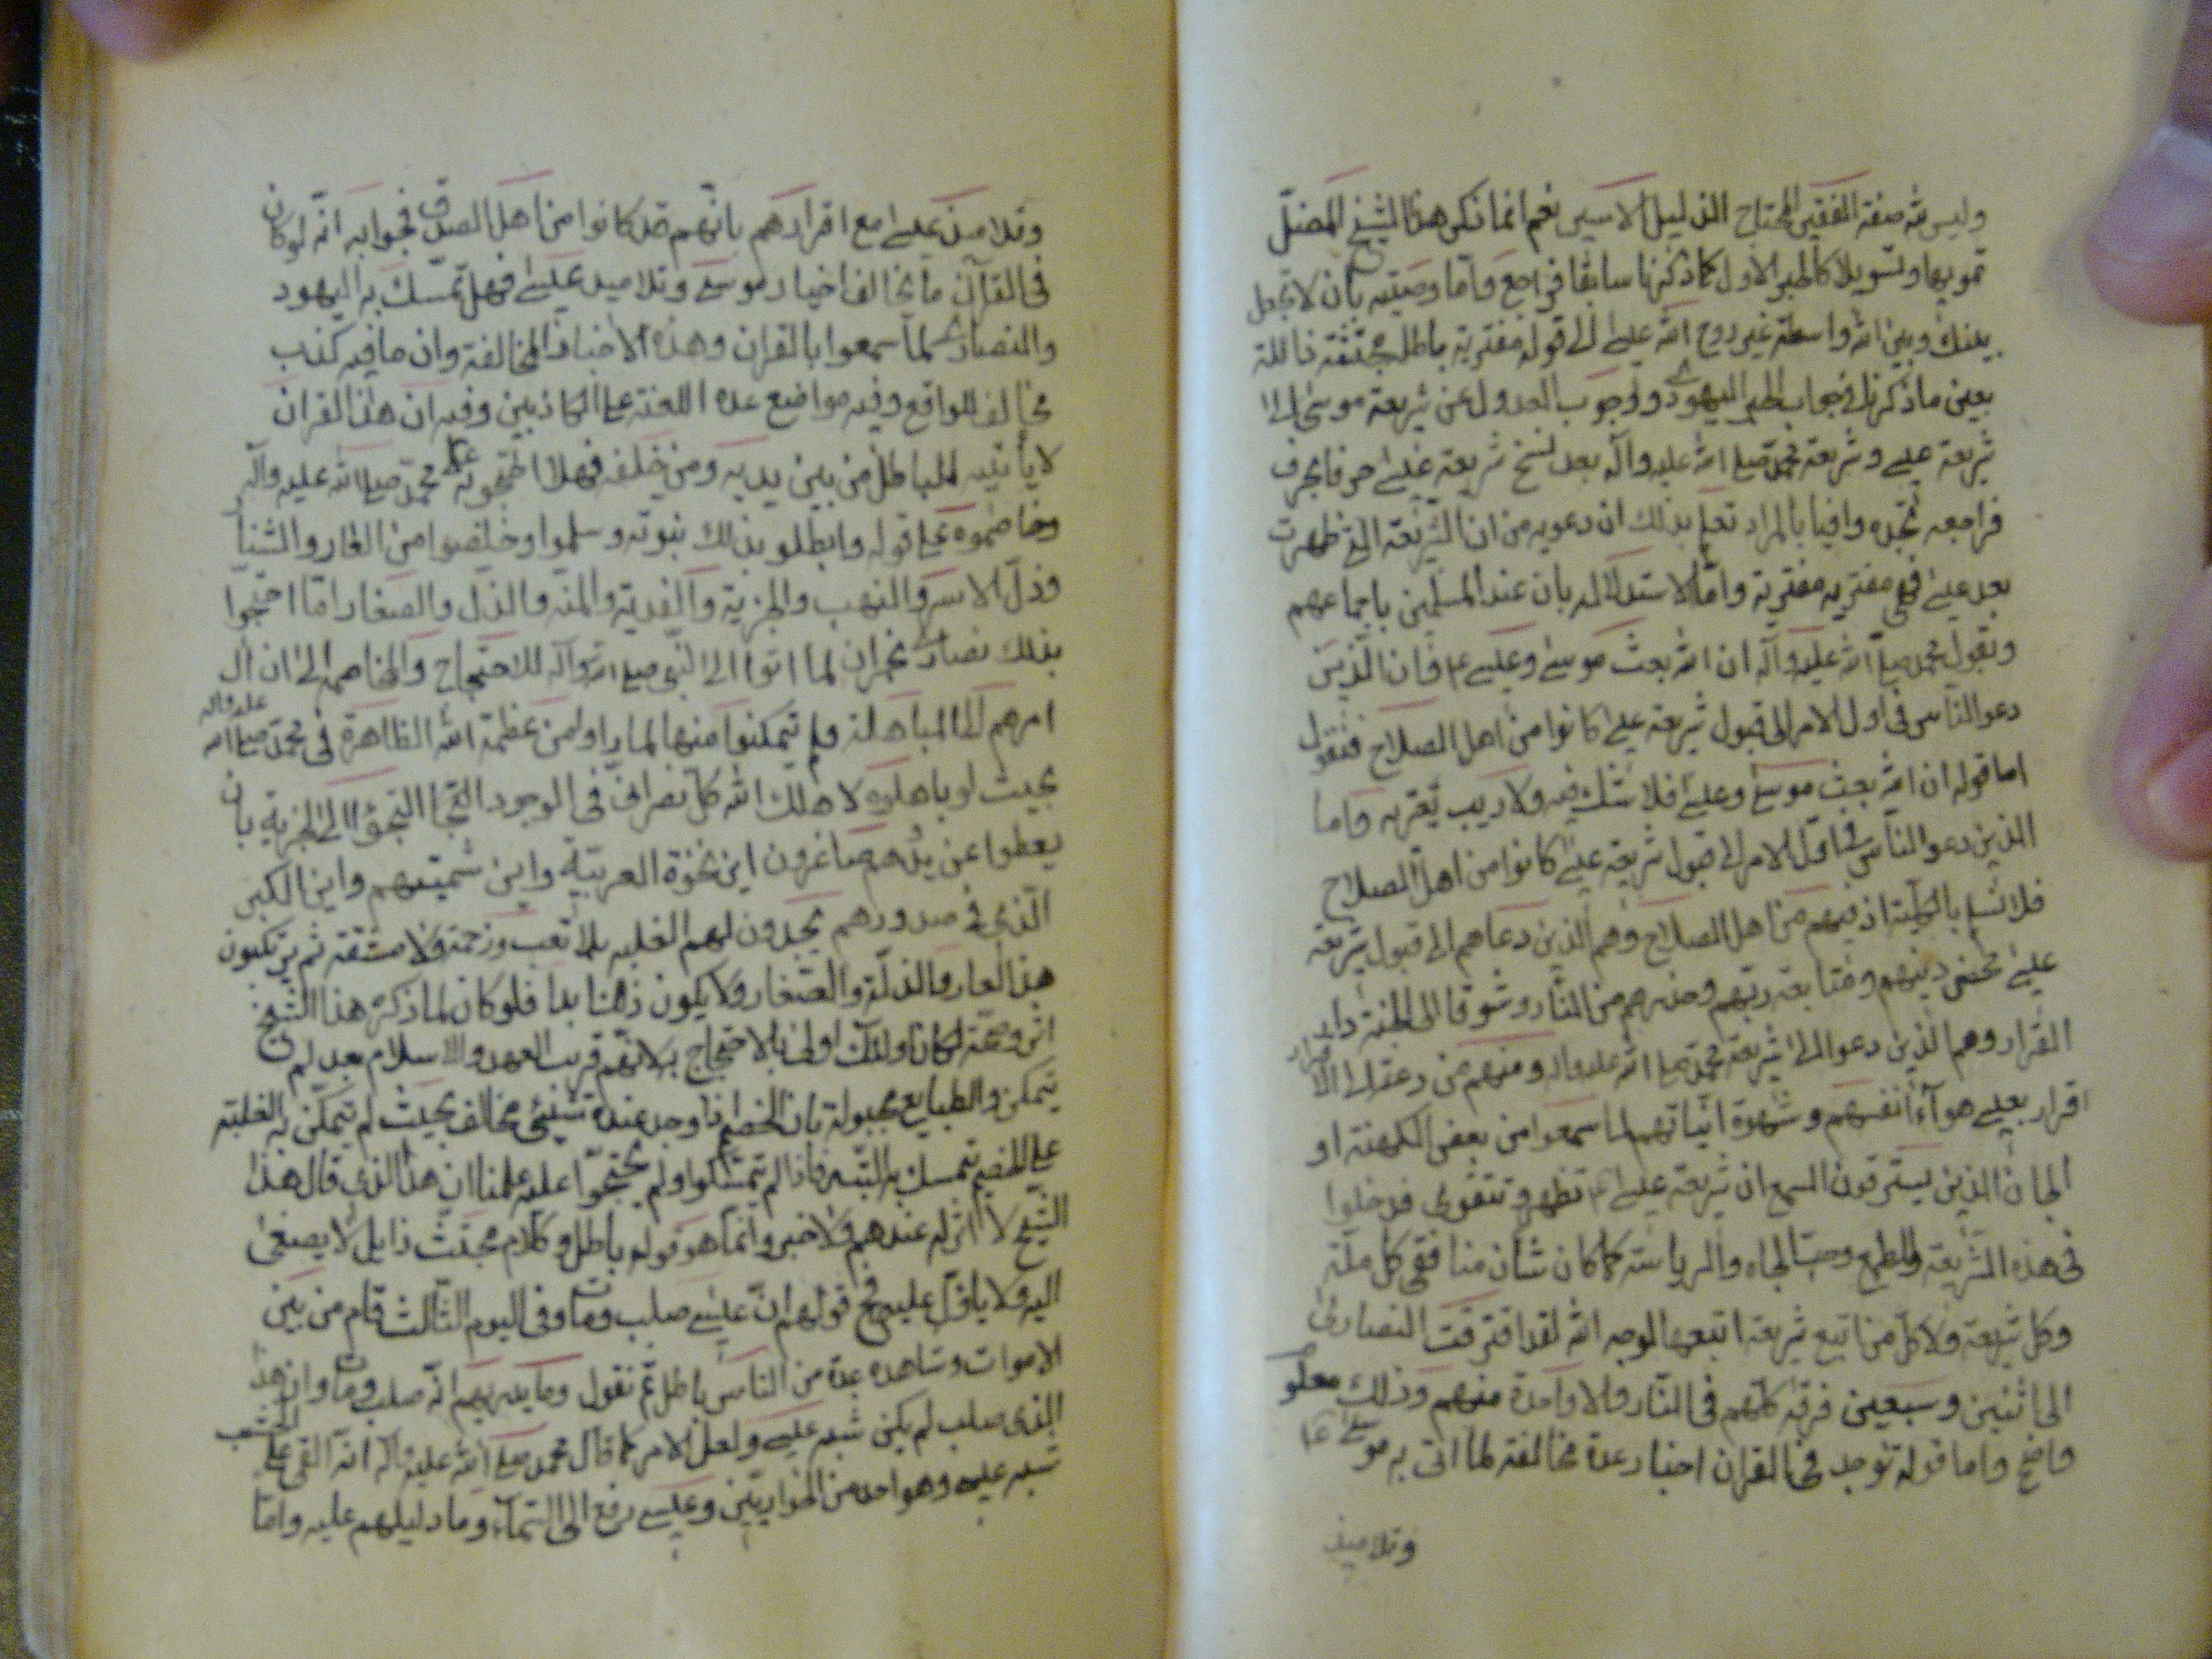 وليس ثمة صفة الفقير المحتاج الذليل الاسير نعم انما ذكر هذا الشيخ المضلّ
تمويها وتسويلا كالحبر الاول كما ذكرنا سابقا فراجع وامّا وصيته بأن لا تجعل
بينك وبين الله واسطة غير روح الله عيسى الى قوله مفترية باطلة مجتثة زائلة
بعين ما ذكرنا في جواب الحبر اليهودى ووجوب العدول عن شريعة موسى الى
شريعة عيسى وشريعة محمد صلى الله عليه وآله بعد نسخ شريعة عيسى حرفا بحرف
فراجعه تجده وافيا بالمراد تعلم بذلك ان دعويه من ان الشريعة التى ظهرت
بعد عيسى فهى مفترية مفترية وامّا الاستدلال له بان عند المسلمين باجماعهم
وبقول محمد صلى الله عليه وآله ان الله بعث موسى وعيسى ع فان الذين
دعوا الناس فى اول الامر الى قبول شريعة عيسى كانوا من اهل الصلاح فنقول
اما قوله ان الله بعث موسى وعيسى فلا شك فيه ولا ريب يعتريه واما
الذين دعوا الناس فى اول الامر الى قبول شريعة عيسى كانوا من اهل الصلاح
فلا نسلم بالكلية اذ فيهم من اهل الصلاح وهم الذين دعاهم الى قبول شريعة
عيسى محض دينهم ومتابعة ربهم وحذرهم من النار وشوقا الى الجنة دار
القرار وهم الذين دعوا الى شريعة محمد صلى الله عليه واله ومنهم من دعته الى الاقرار
اقرار بعيسى هوآء انفسهم وشهوة انياتهم لما سمعوا من بعض الكهنة او
الجان الذين يسترقون السمع ان شريعة عيسى ع تظهر وتتقوى فدخلوا
فى هذه الشريعة للطمع وحب الجاه والرياسة كما كان شأن منافقى كل ملّة
وكل شريعة ولا كلّ من اتبع شريعة اتبعها لوجه الله لقد افترقت النصارى
الى اثنين وسبعين فرقة كلّهم فى النار الا واحدة منهم وذلك معلوم
واضح واما قوله توجد فى القران اخبار عدة مخالفة لما اتى به موسى ع
وتلاميذ
وتلاميذ عيسى مع اقرارهم بانّهم قد كانوا من اهل الصدق فجوابه انّه لو كان
فى القرآن ما يخالف اخبار موسى وتلاميذ عيسى فهل تمسّك به اليهود
والنصارى لما سمعوا بالقران وهذه الاخبار المخالفة وان ما فيه كذب
مخالف للواقع وفيه مواضع عده اللعنة على الكاذبين وفيه ان هذا القران
لا يأتيه الباطل من بين يديه ومن خلفه فهلا احتجوا به على محمد صلى الله عليه وآله
وخاصموه على قوله وابطلو بذلك نبوته وسلموا وخلصوا من العار والشنار
وذلّ الاسر والنهب والجزية والفدية والمنّة والذل والصغار امّا احتجوا
بذلك نصارى نجران لما اتوا الى النّبى صلى الله وآله للاحتجاج والمخاصمة الى ان آل
امرهم الى المباهلة ولم يتمكنوا منها لما راوا من عظمة الله الظاهرة فى محمد صلى الله عليه واله
بحيث لو باهلوه لاهلك الله كل نصرانى فى الوجود التجأ التجؤا الى الجزية بان
يعطوا عن يد هم صاغرون اين نخوة العربيّة واين شميتهم واين الكبر
الّذى فى صدورهم يجدون لهم الغلبه بلا تعب وزحمة ولا مشقة ثم يرتكبون
هذا العار والذلّة والصّغار ولا يكون ذلك ابدا فلو كان لما ذكره هذا الشيخ
اثر وصحّة لكان اولئك اولى بالاحتجاج به لانّهم قريب العهد والاسلام بعد لم
يتمكن والطبايع مجبولة بان الخصم اذا وجد عنده شيئى مخالف بحيث لم يتمكّن له الغلبة
على الخصم تمسك به البتّة فاذا لم يتمسّكوا ولم يحتجّوا عليه علمنا ان هذا الذى قال هذا
الشّيخ لا اثر له عندهم ولا خبر وانّما هو قوله باطل وكلام مجتث زايل لا يصغى
اليه ولا ياوّل عليه فح قولهم انّ عيسى صلب ومات وفى اليوم الثالث قام من بين
الاموات وشاهده عدة من الناس باطل ثم نقول وما يدريهم انّه صلب ومات وان هذا
الذى صلب لم يكن شبه عيسى ولعل الامر كما قال محمد صلى الله عليه وآله انّه القى على المشبه
شبه عيسى وهو احد من الحواريّين وعيسى رفع الى السّمآء وما دليلهم عليه وامّا